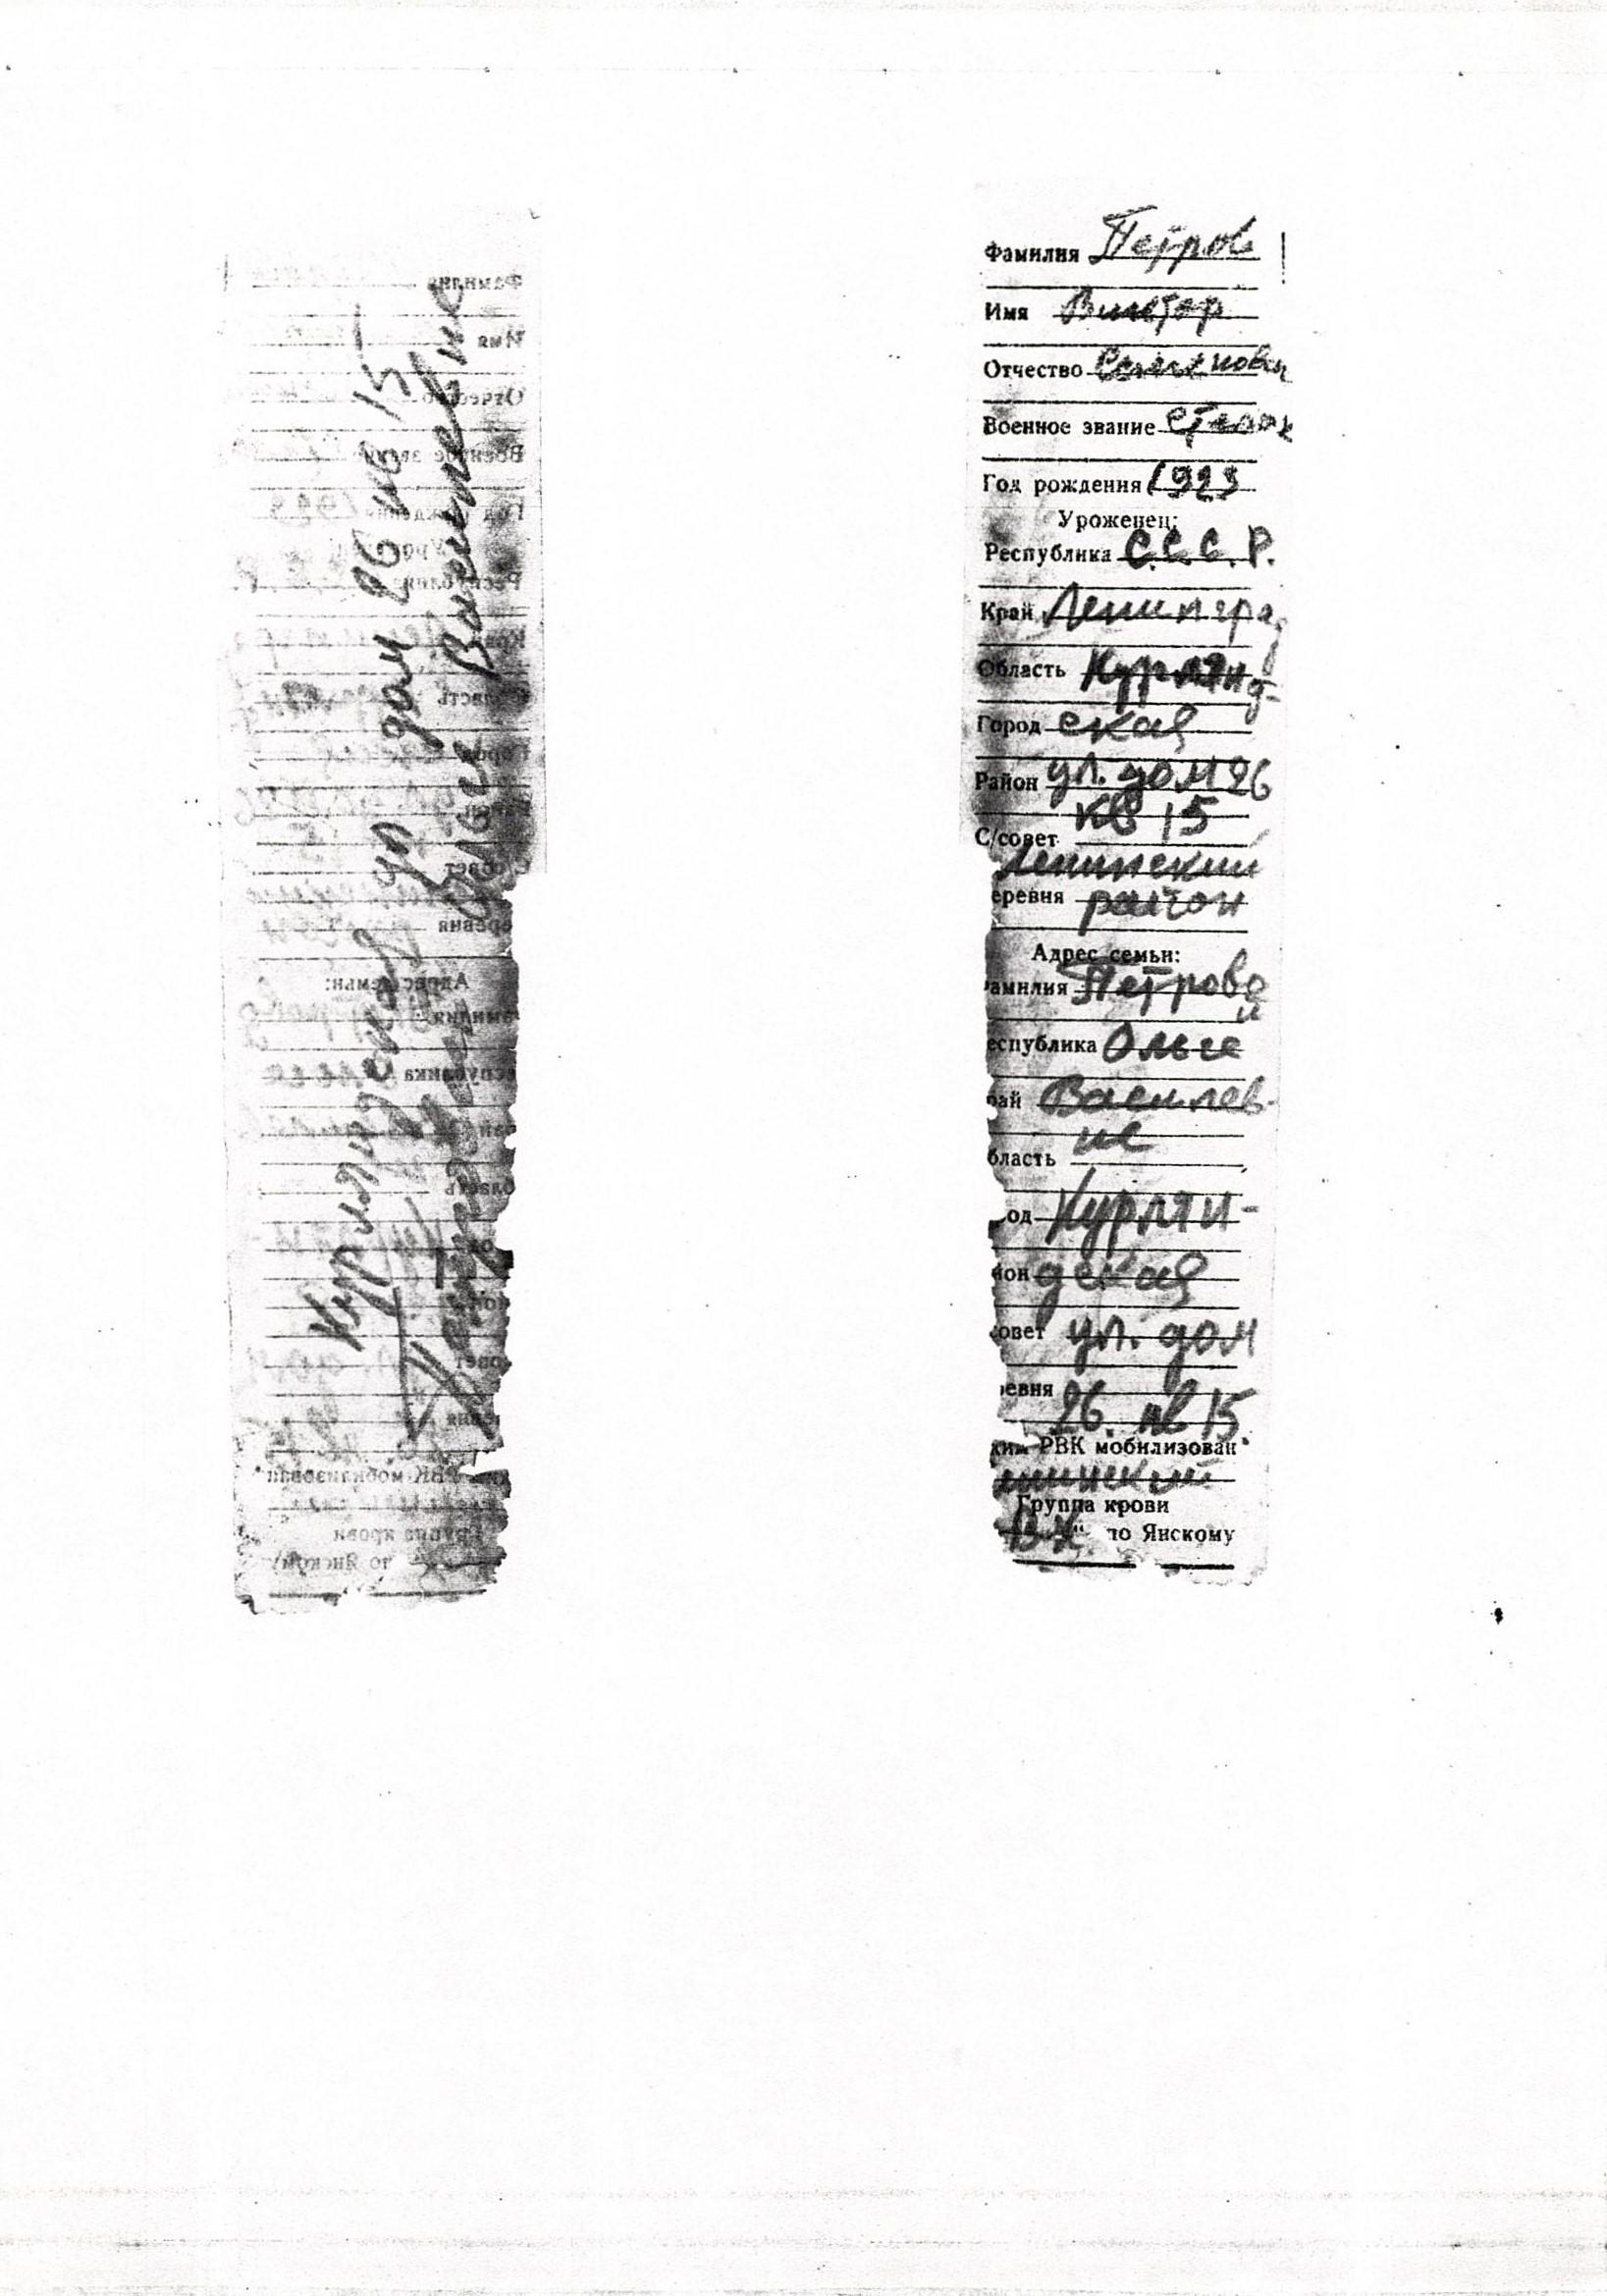 Курляндская ул дом 26 кв 15
Ольге Василевне
Фамилия Петров
Имя Виктор
Отчество Семёнович
Военное звание
Год рождения 1923
Уроженец:
Республика С.С.С.Р.
Край Ленинград
Область Курлянд-
Город ская
Район ул. дом 26
С/совет кв 15
Ленинский
еревня район
Адрес семьи:
амилия Петровой
еспублика Ольге
рай Василев-
бласть не
од Курлян-
йон дская
совет ул. дом
ревня 26. кв 15.
ким РВК мобилизован
енинский
Группа крови
по Янскому